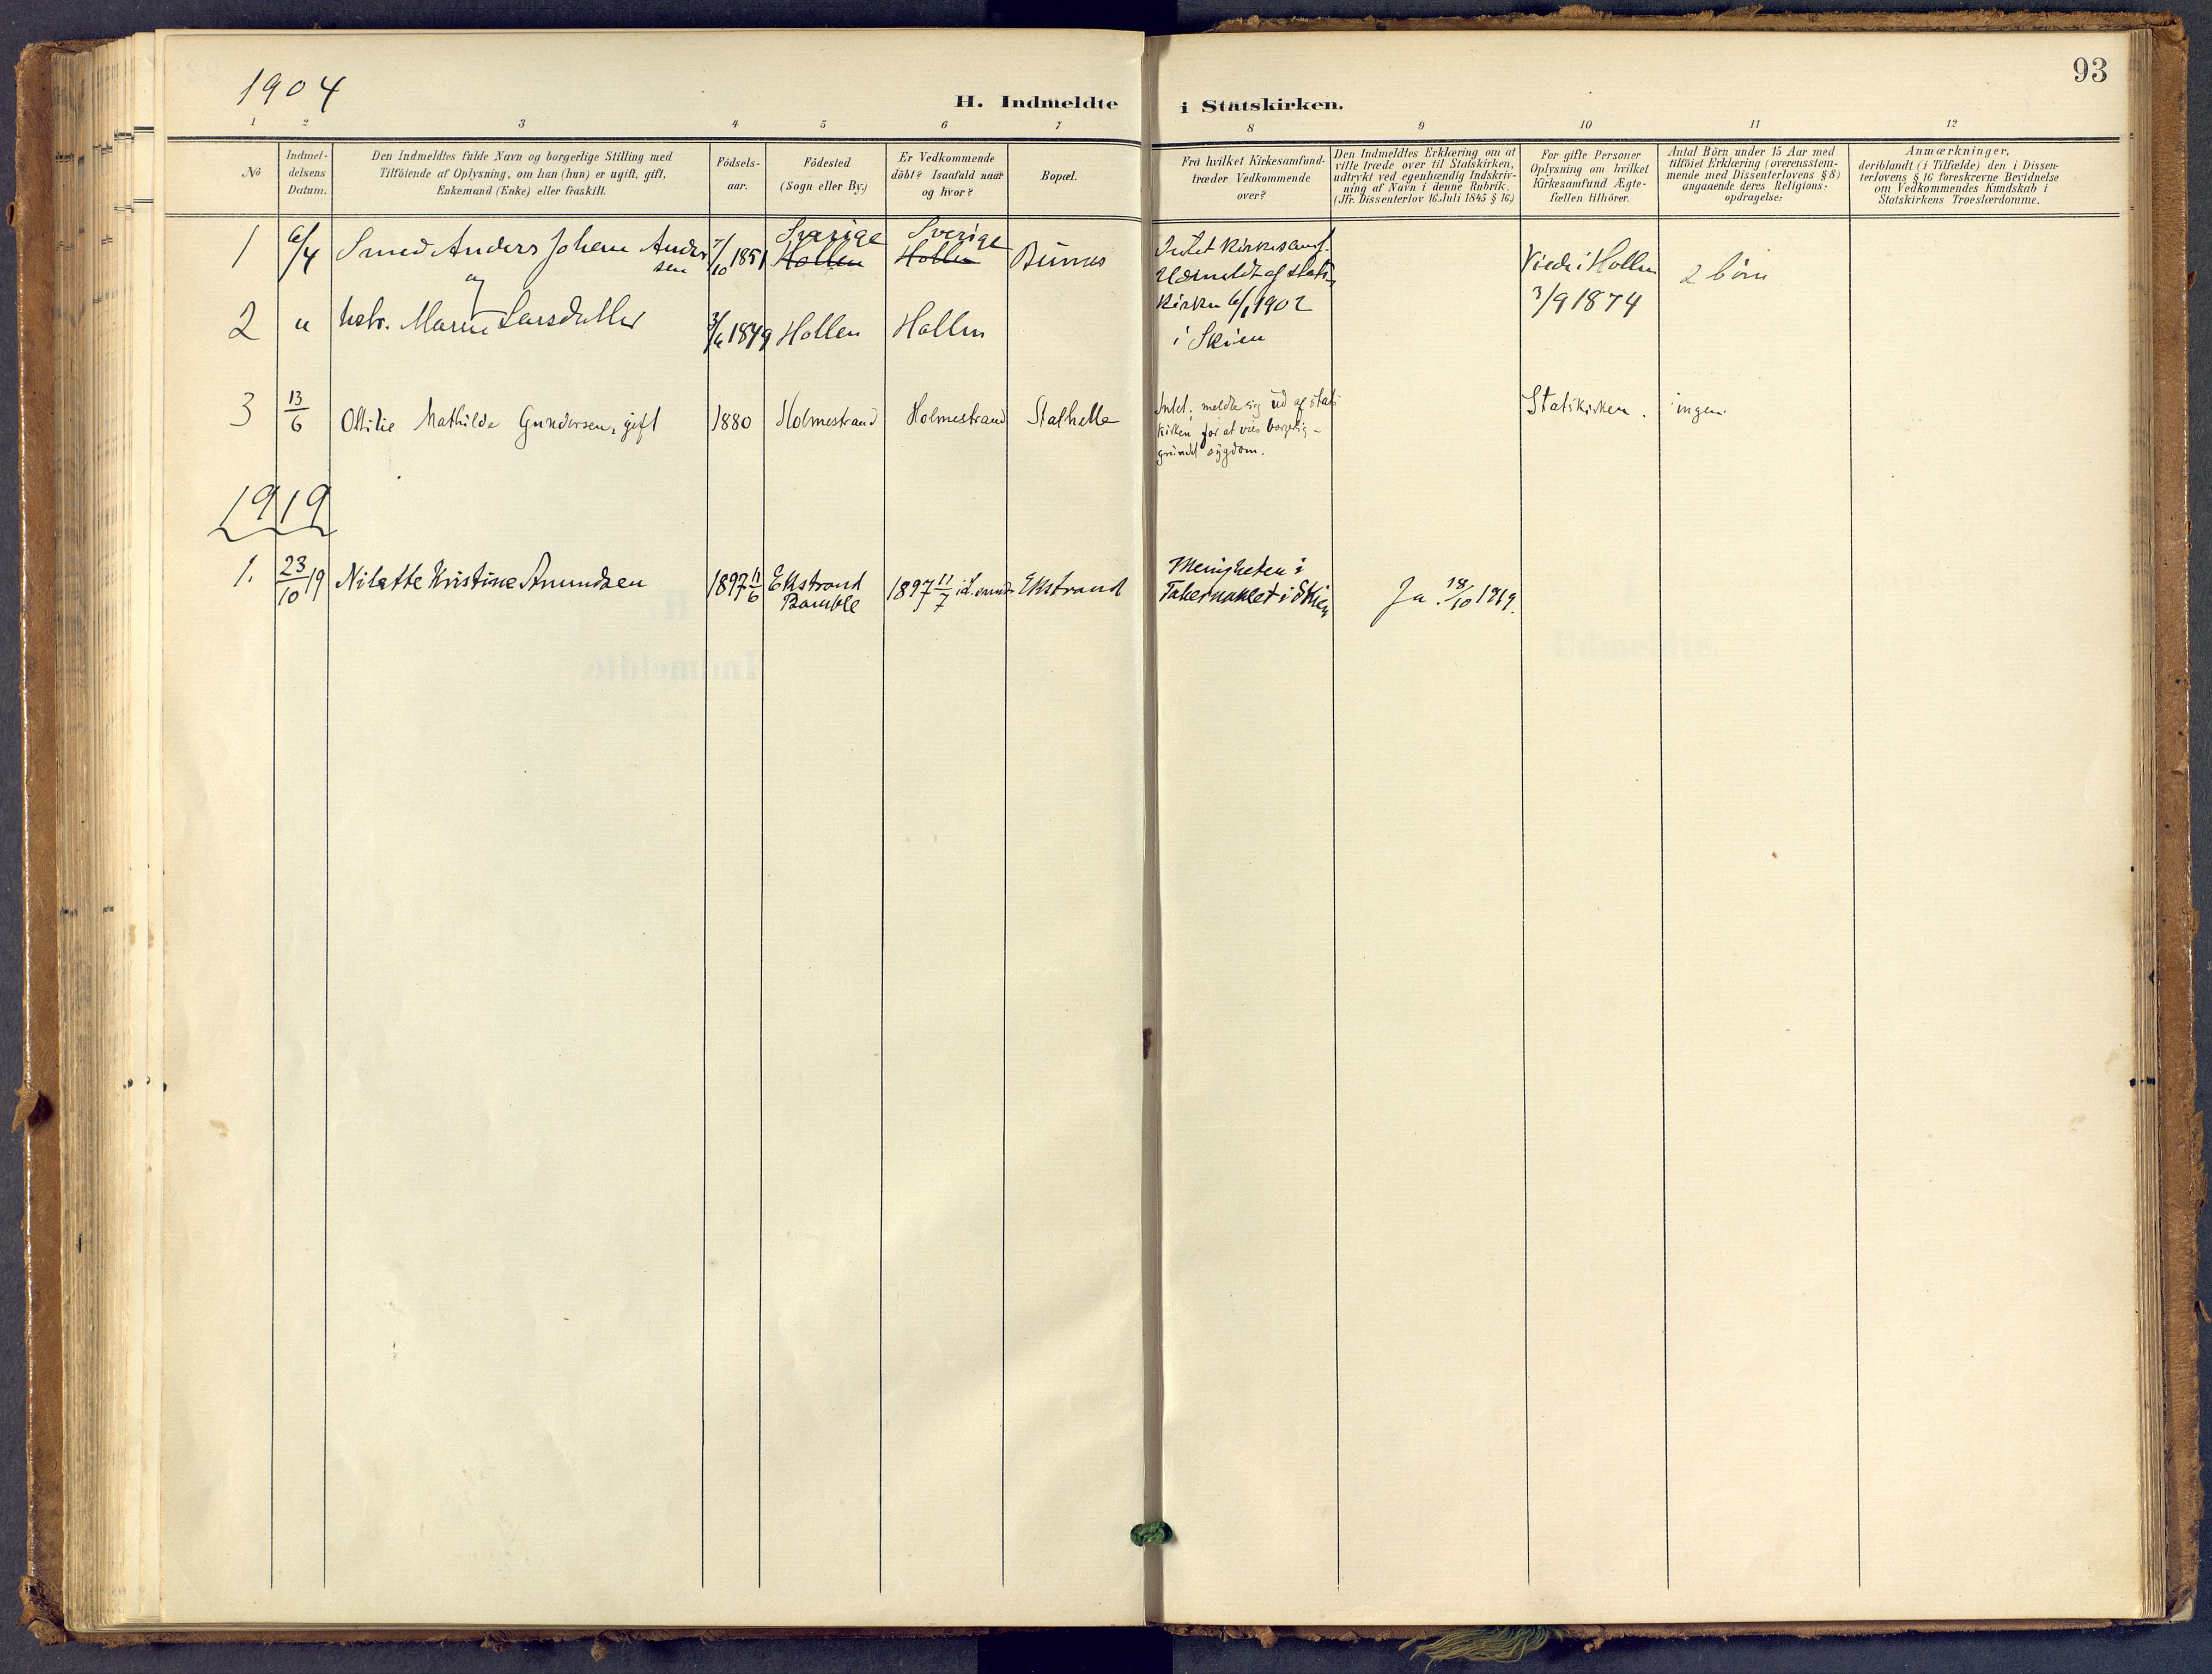 93
1904
H. Indmeldte i Statskirken.
1 2 3 4 5 6 7 8 9 10 11 12
No
Indmel-
delsens
Datum.
Den Indmeldtes fulde Navn og borgerlige Stilling med
Tilföiende af Oplysning, om han (hun) er ugift, gift,
Enkemand (Enke) eller fraskilt.
Födsels-
aar.
Födested
(Sogn eller By.)
Er Vedkommende
döbt? Isaafald naar
og hvor?
Bopæl.
Fra hvilket Kirkesamfund-
træder Vedkommende
over?
Den Indmeldtes Erklæring om at
ville træde over til Statskirken,
udtrykt ved egenhændig Indskriv-
ning af Navn i denne Rubrik.
(Jfr. Dissenterlov 16. Juli 1845 § 16.)
For gifte Personer
Oplysning om hvilket
Kirkesamfund Ægte-
fællen tilhörer.
Antal Börn under 15 Aar med
tilföiet Erklæring (overensstem-
mende med Dissenterlovens § 8)
angaaende deres Religions-
opdragelse:
Anmærkninger,
deriblandt (i Tilfælde) den i Dissen-
terlovens § 16 foreskrevne Bevidnelse
om Vedkommendes Kundskab i
Statskirkens Troeslærdomme.
1
6/4
Smed Anders Johan Ander
sen
og
7/10 1851
Sverige
Hollen
Sverige
Hollen
Intet Kirkesamf.
Udmeldt af stats-
kirken 6/1 1902
i Skien
Viede i Hollen
3/9 1874
2 börn
2
"
hstr. Maren Larsdatter
1849
Hollen
Hollen
3
13/6
Ottilie Mathilde Gundersen, gift
1880
Holmestrand
Holmestrand
Stathelle
Intet; meldte sig ud af stats
kirken for at vies borgerlig -
grundet sygdom.
Statskirken.
ingen.
1919
1.
23/10 19
Nilette Kristine Amundsen
1897 11/6
Ekstrand
Bamble
1897 11/7
Ekstrand
Menigheten i
Tabernaklet i Skien
Ja. 18/10 1919.